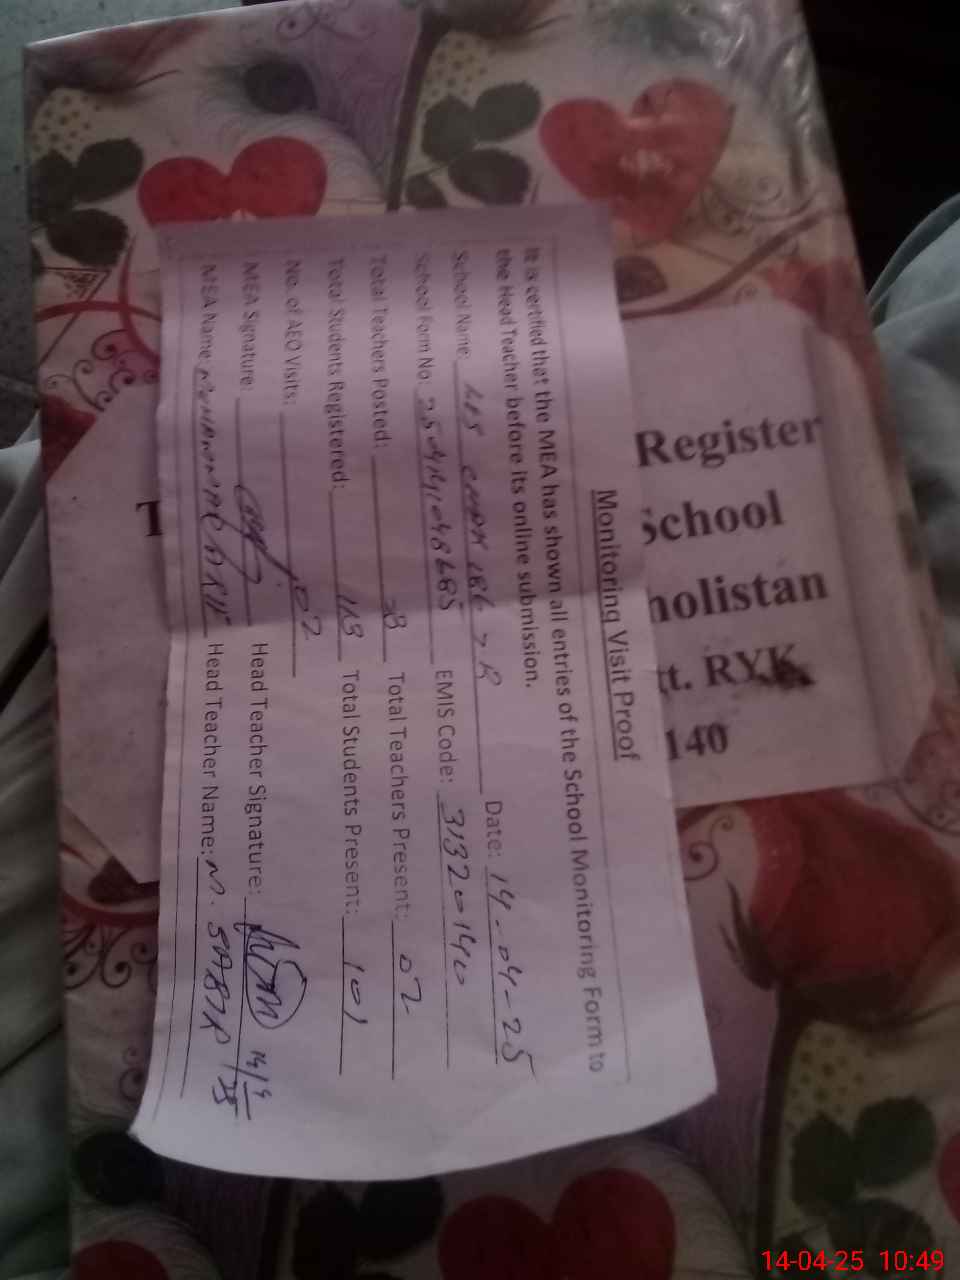 Monitoring Visit Proof
It is certified that the MEA has shown all entries of the School Monitoring Form to
the Head Teacher before its online submission.
School Name: CHAK 186 7 R Date: 14-04-25
School Form No: EMIS Code: 31320140
Total Teachers Posted: Total Teachers Present: 02
Total Students Registered: 118 Total Students Present: 101
No. of AEO Visits: 02
MEA Signature: Head Teacher Signature: 14/4
MEA Name: Head Teacher Name: M. SABIR
Register
School
holistan
tt. RYK
140
T
14-04-25 10:49